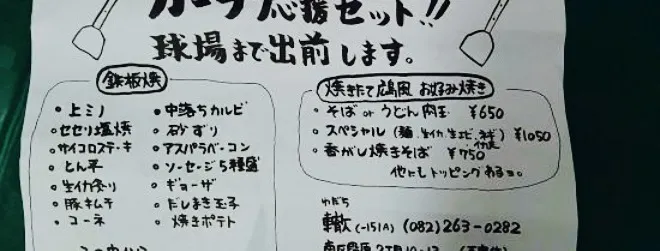 カープ応援セット!!
球場まで出前します。
鉄板焼
・上ミノ
・セセリ塩焼
・サイコロステーキ
・とん平
・生イカ炙り
・豚キムチ
・コーネ
・中落ちカルビ
・砂ずり
・アスパラベーコン
・ソーセージ5種盛
・ギョーザ
・だしまき玉子
・焼きポテト
焼きたて広島風 お好み焼き
・そば or うどん肉玉 ¥650
・スペシャル(麺、生イカ、生エビ、ネギ、イカ天) ¥1050
・香がし焼きそば ¥750
他にもトッピングあるョ。
わだち
轍(-151A) (082)263-0282